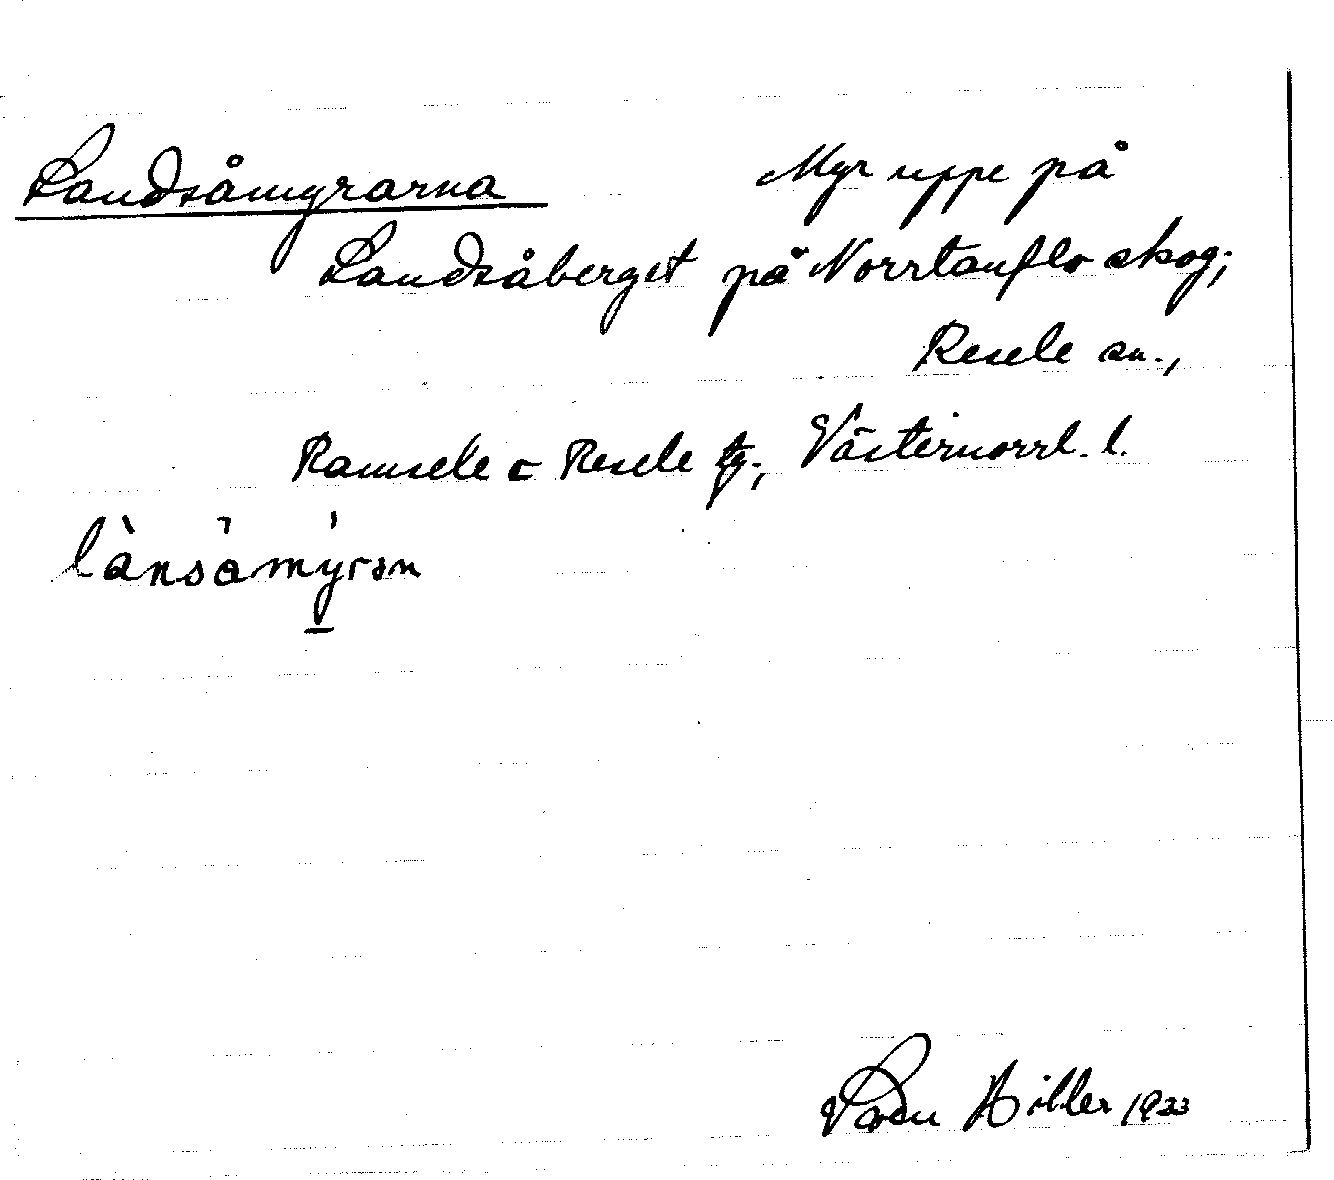 Landsåmyrarna Myr uppe på
Landsåberget på Norrtanflo skog;
Resele sn.,
Ramsele o Resele tg., Västernorrl. l.
lànsåmýrən
Hiller 1933